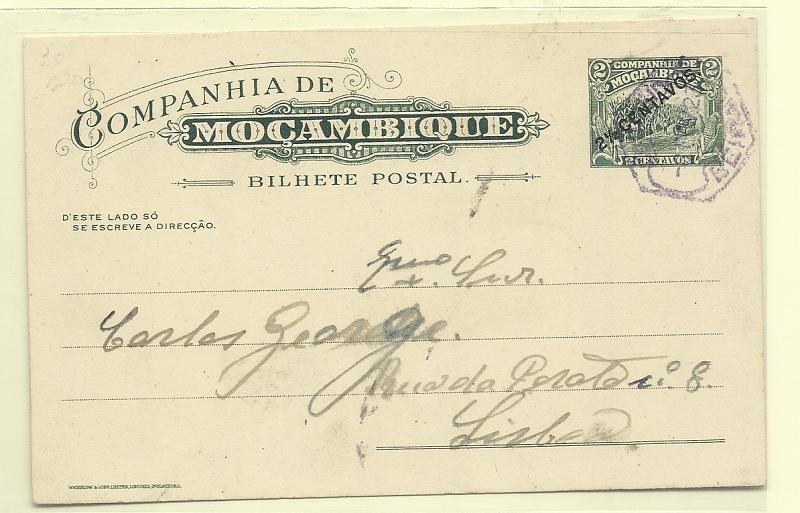 COMPANHIA DE
MOÇAMBIQUE
BILHETE POSTAL.
D'ESTE LADO SÓ
SE ESCREVE A DIRECÇÃO.
2 COMPANHIA DE 2
MOÇAMBIQUE
2½ CENTAVOS
2 CENTAVOS
BEIRA
Exmo. Snr.
Carlos George.
Rua da n.º 8.
Lisboa
WATERLOW & SONS LIMITED, LONDRES, INGLATERRA.